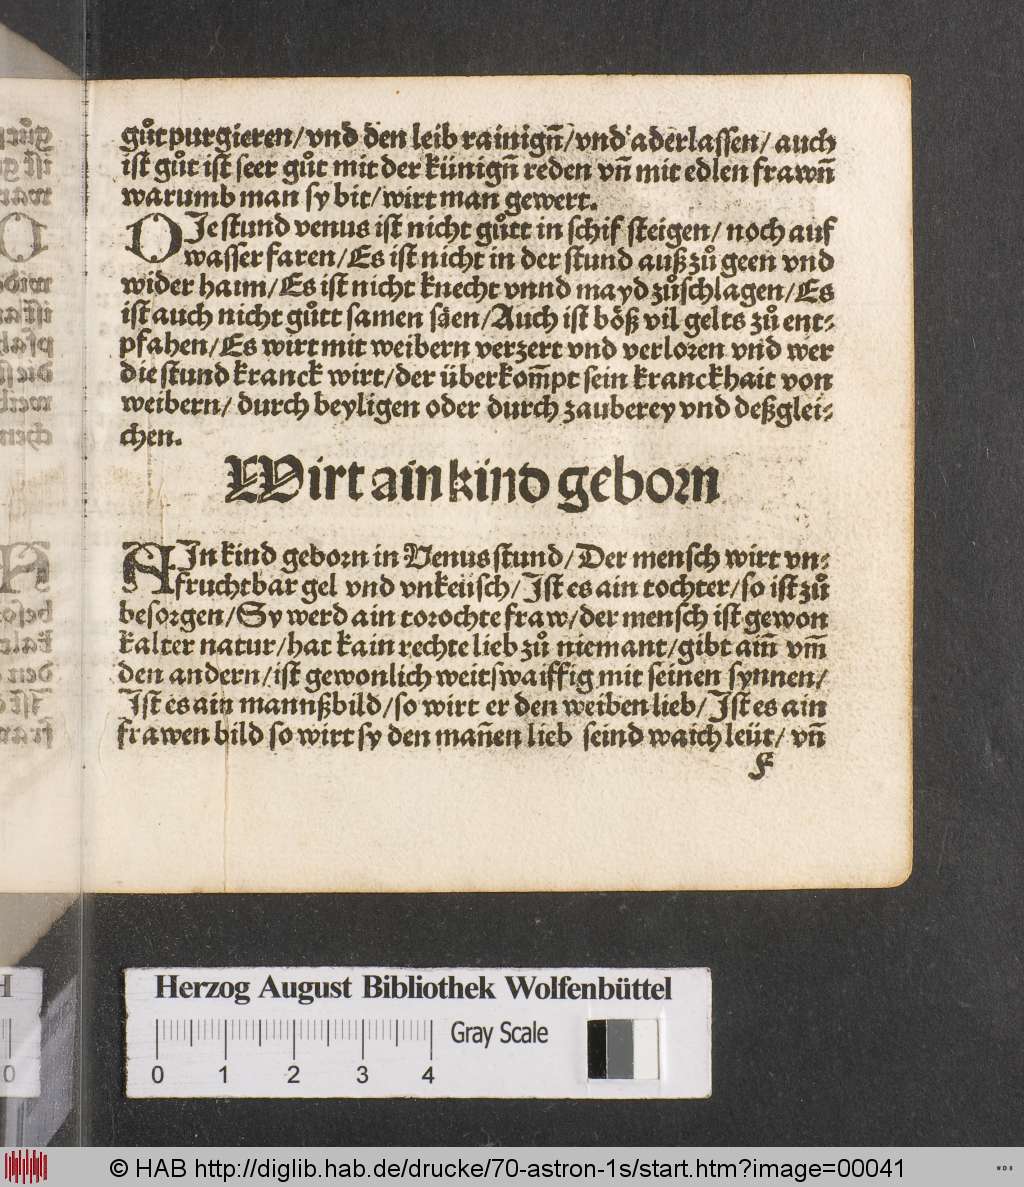 gůt purgieren/ vnd den leib rainigñ/ vnd aderlassen/ auch
ist gůt ist seer gůt mit der künigñ reden vñ mit edlen frawñ
warumb man sy bit/ wirt man gewert.
DJe stund venus ist nicht gůtt in schif steigen/ noch auf
wasser faren/ Es ist nicht in der stund auß zů geen vnd
wider haim/ Es ist nicht knecht vnnd mayd zůschlagen/ Es
ist auch nicht gůtt samen säen/ Auch ist böß vil gelts zů ent⸗
pfahen/ Es wirt mit weibern verzert vnd verloren vnd wer
die stund kranck wirt/ der überkom̃pt sein kranckhait von
weibern/ durch beyligen oder durch zauberey vnd deßglei⸗
chen.
Wirt ain kind geborn
AJn kind geborn in Venus stund/ Der mensch wirt vn⸗
fruchtbar gel vnd vnkeüsch/ Jst es ain tochter/ so ist zů
besorgen/ Sy werd ain torochte fraw/ der mensch ist gewon
kalter natur/ hat kain rechte lieb zů niemant/ gibt ain̄ vm̄
den andern/ ist gewonlich weitswaiffig mit seinen synnen/
Jst es ain mannßbild/ so wirt er den weiben lieb/ Jst es ain
frawen bild so wirt sy den mañen lieb seind waich leüt/ vñ
F
Herzog August Bibliothek Wolfenbüttel
Gray Scale
0 1 2 3 4
© HAB http://diglib.hab.de/drucke/70-astron-1s/start.htm?image=00041